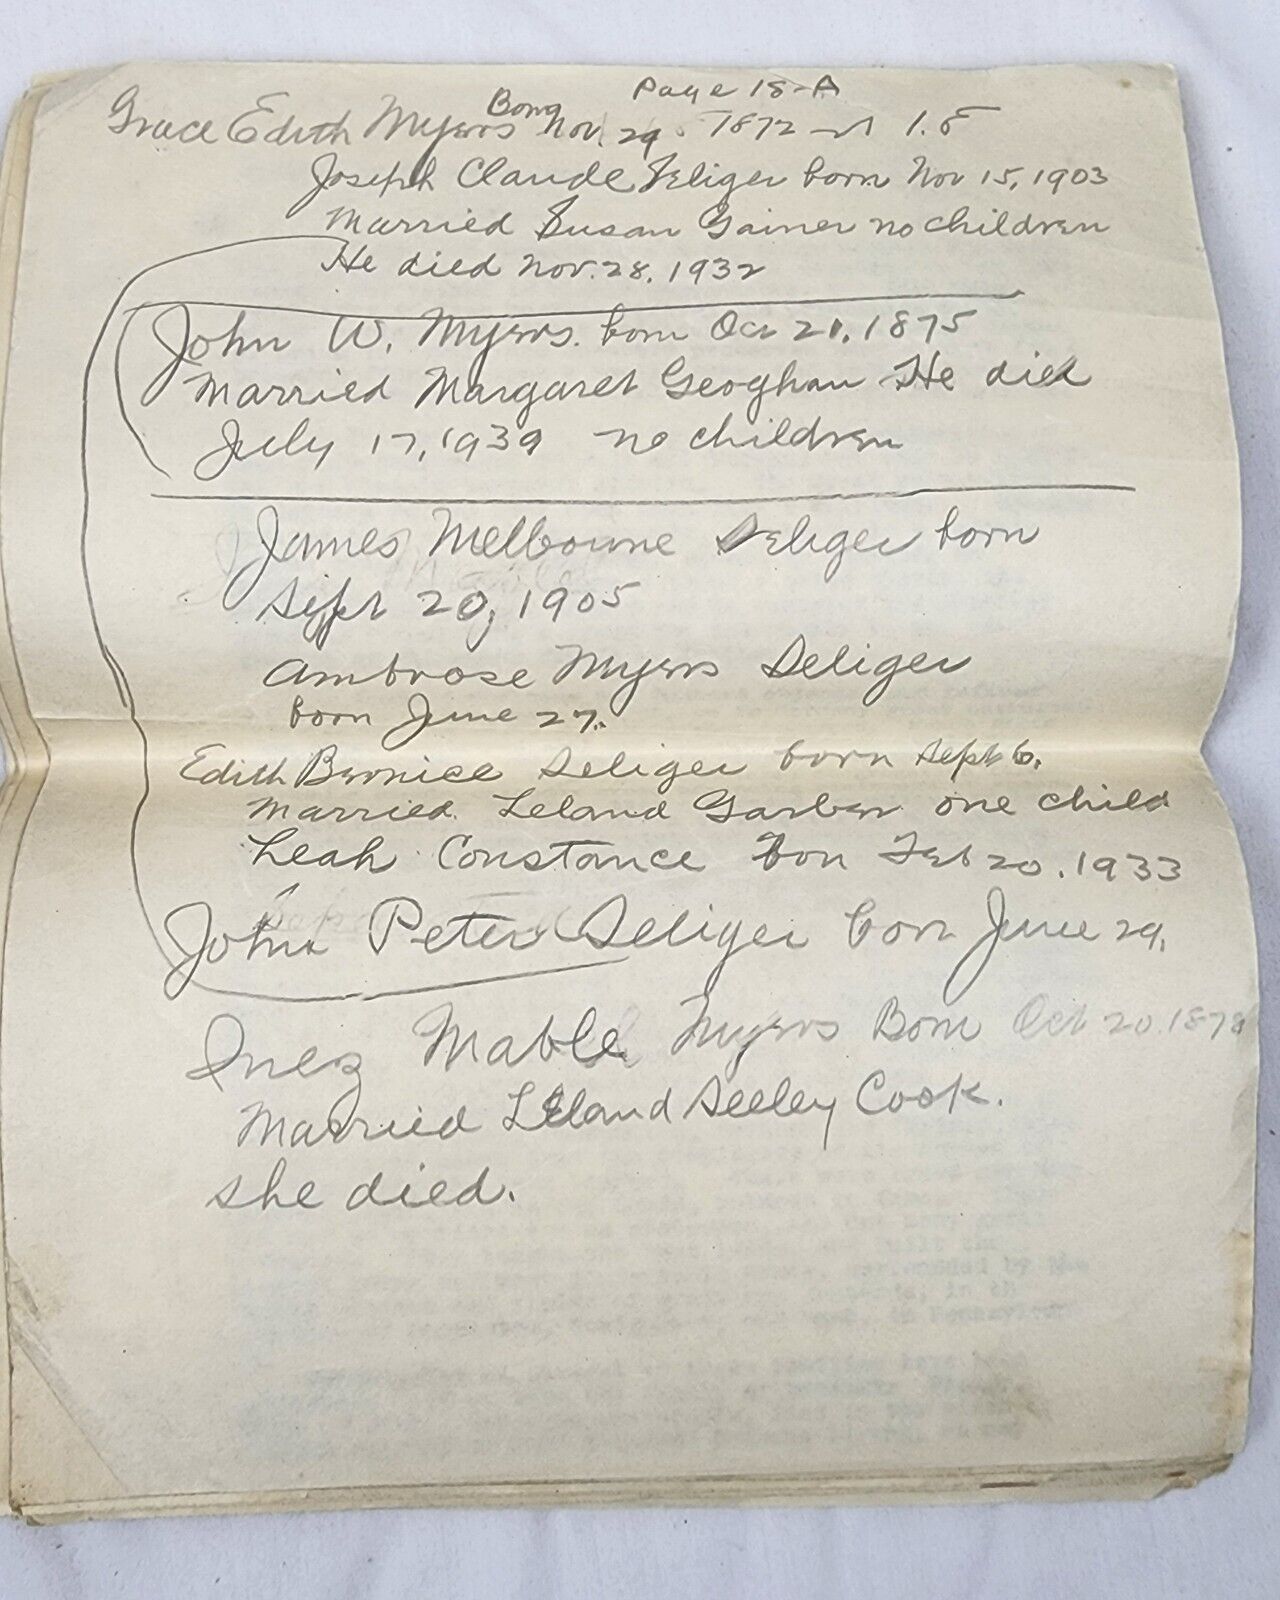 Page 18-A
Grace Edith Myers Born Nov. 29 1872
Joseph Claude Seliger born Nov 15, 1903
Married Susan Gainer no children
He died Nov. 28, 1932
John W. Myers. born Oct 21, 1875
Married Margaret Geoghan He died
July 17, 1939 no children
James Melbourne Seliger born
Sept 20, 1905
Ambrose Myers Seliger
born June 27.
Edith Bernice Seliger born Sept 6.
Married. Leland Garber one child
Leah Constance born Feb 20, 1933
John Peter Seliger born June 29,
Inez Mable Myers Born Oct 20. 1878
Married Leland Seeley Cook.
She died.